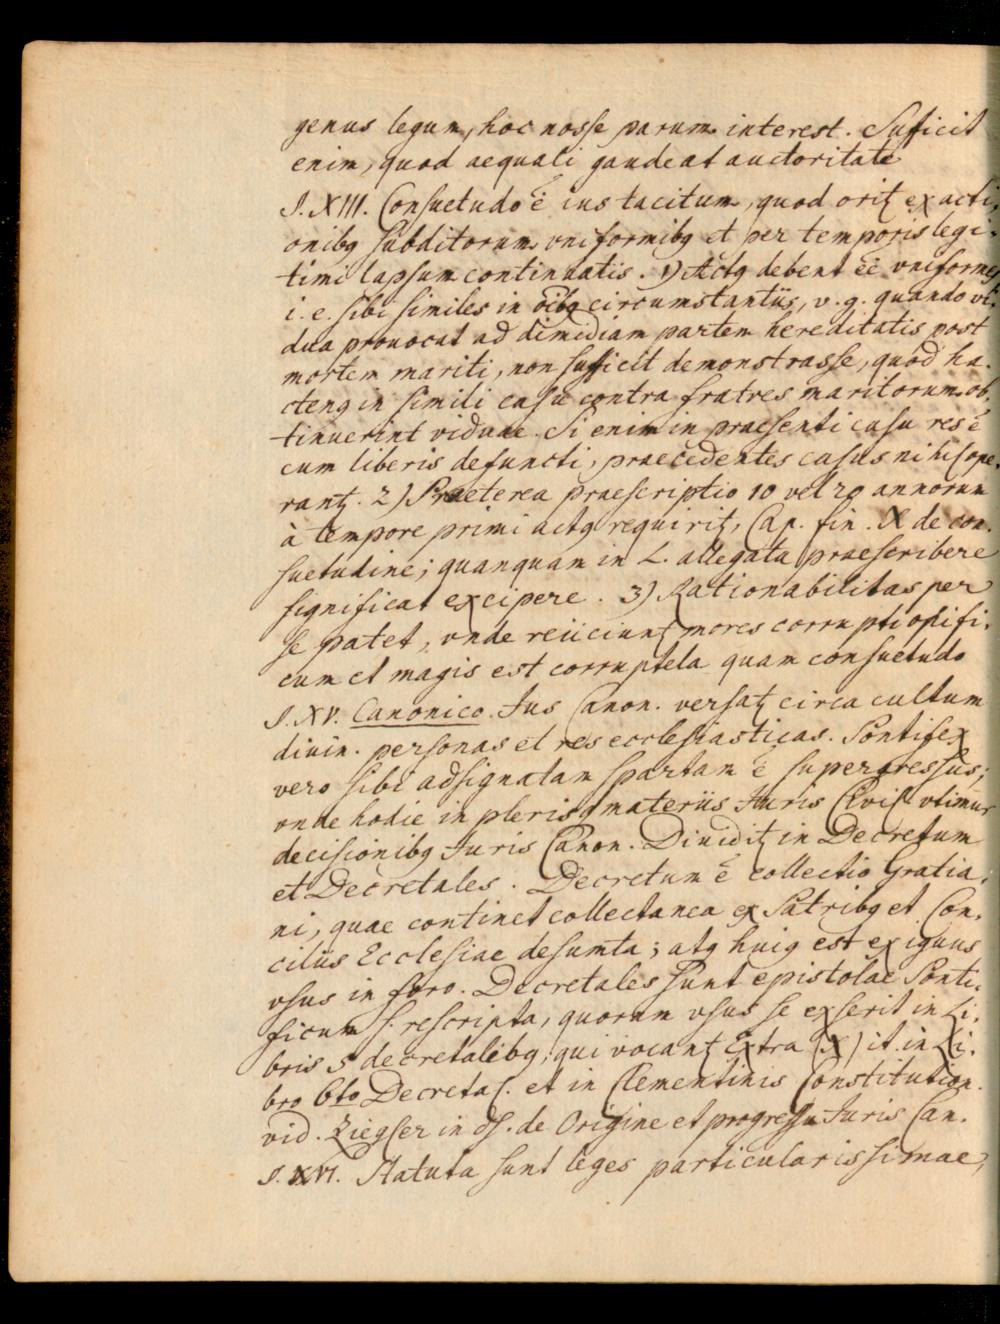 genus legum, hoc nosse parum interest. Suficit
enim, quod aequali gaudeat auctoritate
§. XIII. Consuetudo ē ius tacitum, quod oritꝫ ex acti-
onibꝫ subditorum vniformibꝫ et per temporis legi-
timi lapsum continuatis. 1) Actꝫ debent eē vniformes
i. e. sibi similes in oībꝫ circumstantiis, v. g. quando vi-
dua prouocat ad dimidiam partem hereditatis post
mortem mariti, non sufficit demonstrasse, quod ha-
ctenꝫ in simili casu contra fratres maritorum ob-
tinuerint viduae. Si enim in praesenti casu res ē
cum liberis defuncti, praecedentes casus nihil ope-
rantꝫ. 2) Praeterea praescriptio 10 vel 20 annorum
à tempore primi actꝫ requiritꝫ, Cap. fin. X de con-
suetudine; quanquam in L. allegata praescribere
significat excipere. 3) Rationabilitas per
se patet, vnde reiiciuntꝫ mores corrupti opifi-
cum et magis est corruptela quam consuetudo
§. XV. Canonico. Jus Canon. versatꝫ circa cultum
diuin. personas et res ecclesiasticas. Pontifex
vero sibi adsignatam spartam ē supergressus;
vnde hodie in plerisqꝫ materiis Juris Civil vtimur
decisionibꝫ Juris Canon. Diuiditꝫ in Decretum
et Decretales. Decretum ē collectio Gratia-
ni, quae continet collectanea ex Patribꝫ et Con-
ciliis Ecclesiae desumta; atqꝫ huiꝫ est exiguus
vsus in foro. Decretales sunt epistolae Ponti-
ficum s. rescripta, quorum vsus se exserit in Li-
bris 5 decretalibꝫ, qui vocantꝫ Extra (X) it. in Li-
bro 6to Decretal. et in Clementinis Constitution.
vid. Ziegler in ds. de Origine et progressu Juris Can.
§. XVI. Statuta sunt leges particularissimae,